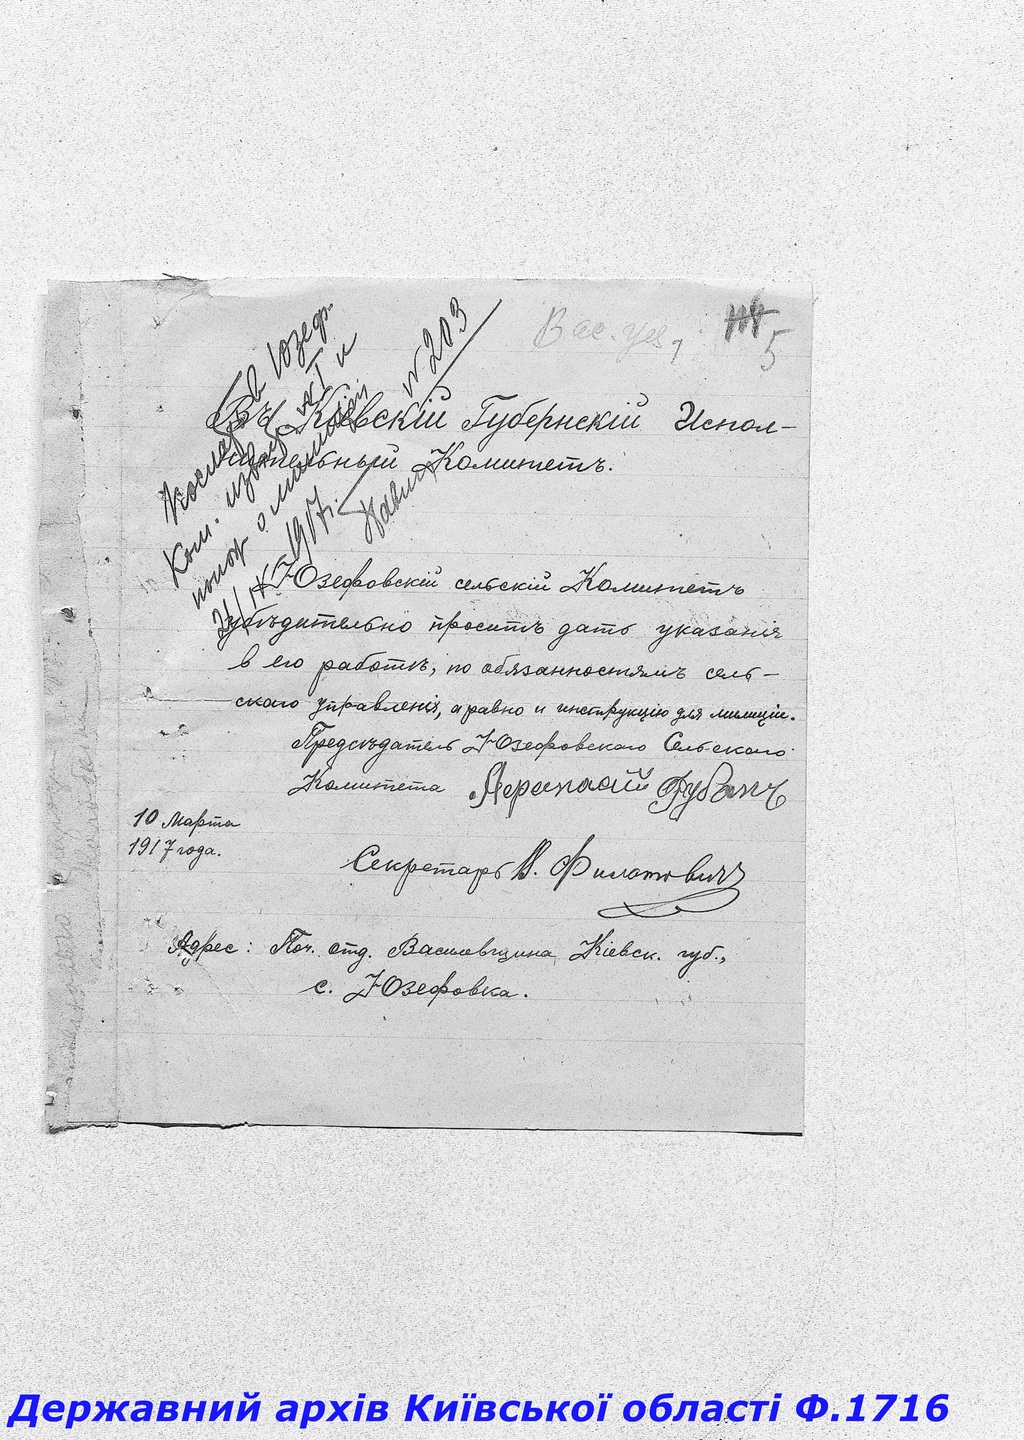 Вас. уез,
5
№ 203
Послать в Юзеф.
Ком. извѣщ. №1 и
полож о милиціи
21/IV 1917 г.
Въ Кіевскій Губернскій Испол-
нительный Комитетъ.
Юзефовскій сельскій Комитетъ
убѣдительно проситъ дать указанія
в его работѣ, по обязанностямъ сель-
скаго управленія, а равно и инструкцію для милиціи.
Предсѣдатель Юзефовскаго Сельскаго
Комитета Рубанъ
10 Марта
1917 года.
Секретарь В. Филатовичъ
Адрес: Поч. отд. Василевщина, Кіевск. губ.,
с. Юзефовка.
Державний архів Київської області Ф.1716